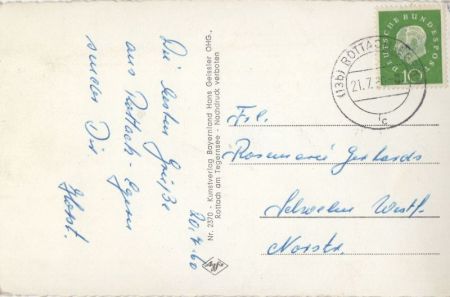 20.7.60
Die besten Grüße
aus Rottach-Egern
sendet Dir
Horst.
Nr. 2370 - Kunstverlag Bayernland Hans Geissler OHG.,
Rottach am Tegernsee - Nachdruck verboten
DEUTSCHE BUNDESPOST
10
(13b) ROTTACH
21.7.
c
Frl.
Rosemarie Gerhards
Schwelm Westf.